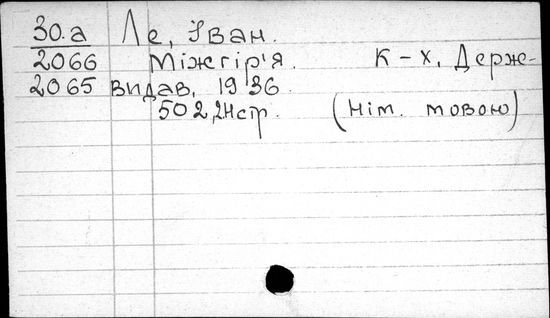 30.а Ле, Іван.
2066 Міжгір'я. К-х, Держ-
2065 видав, 1936.
502, 2н стр. (нім. мовою)